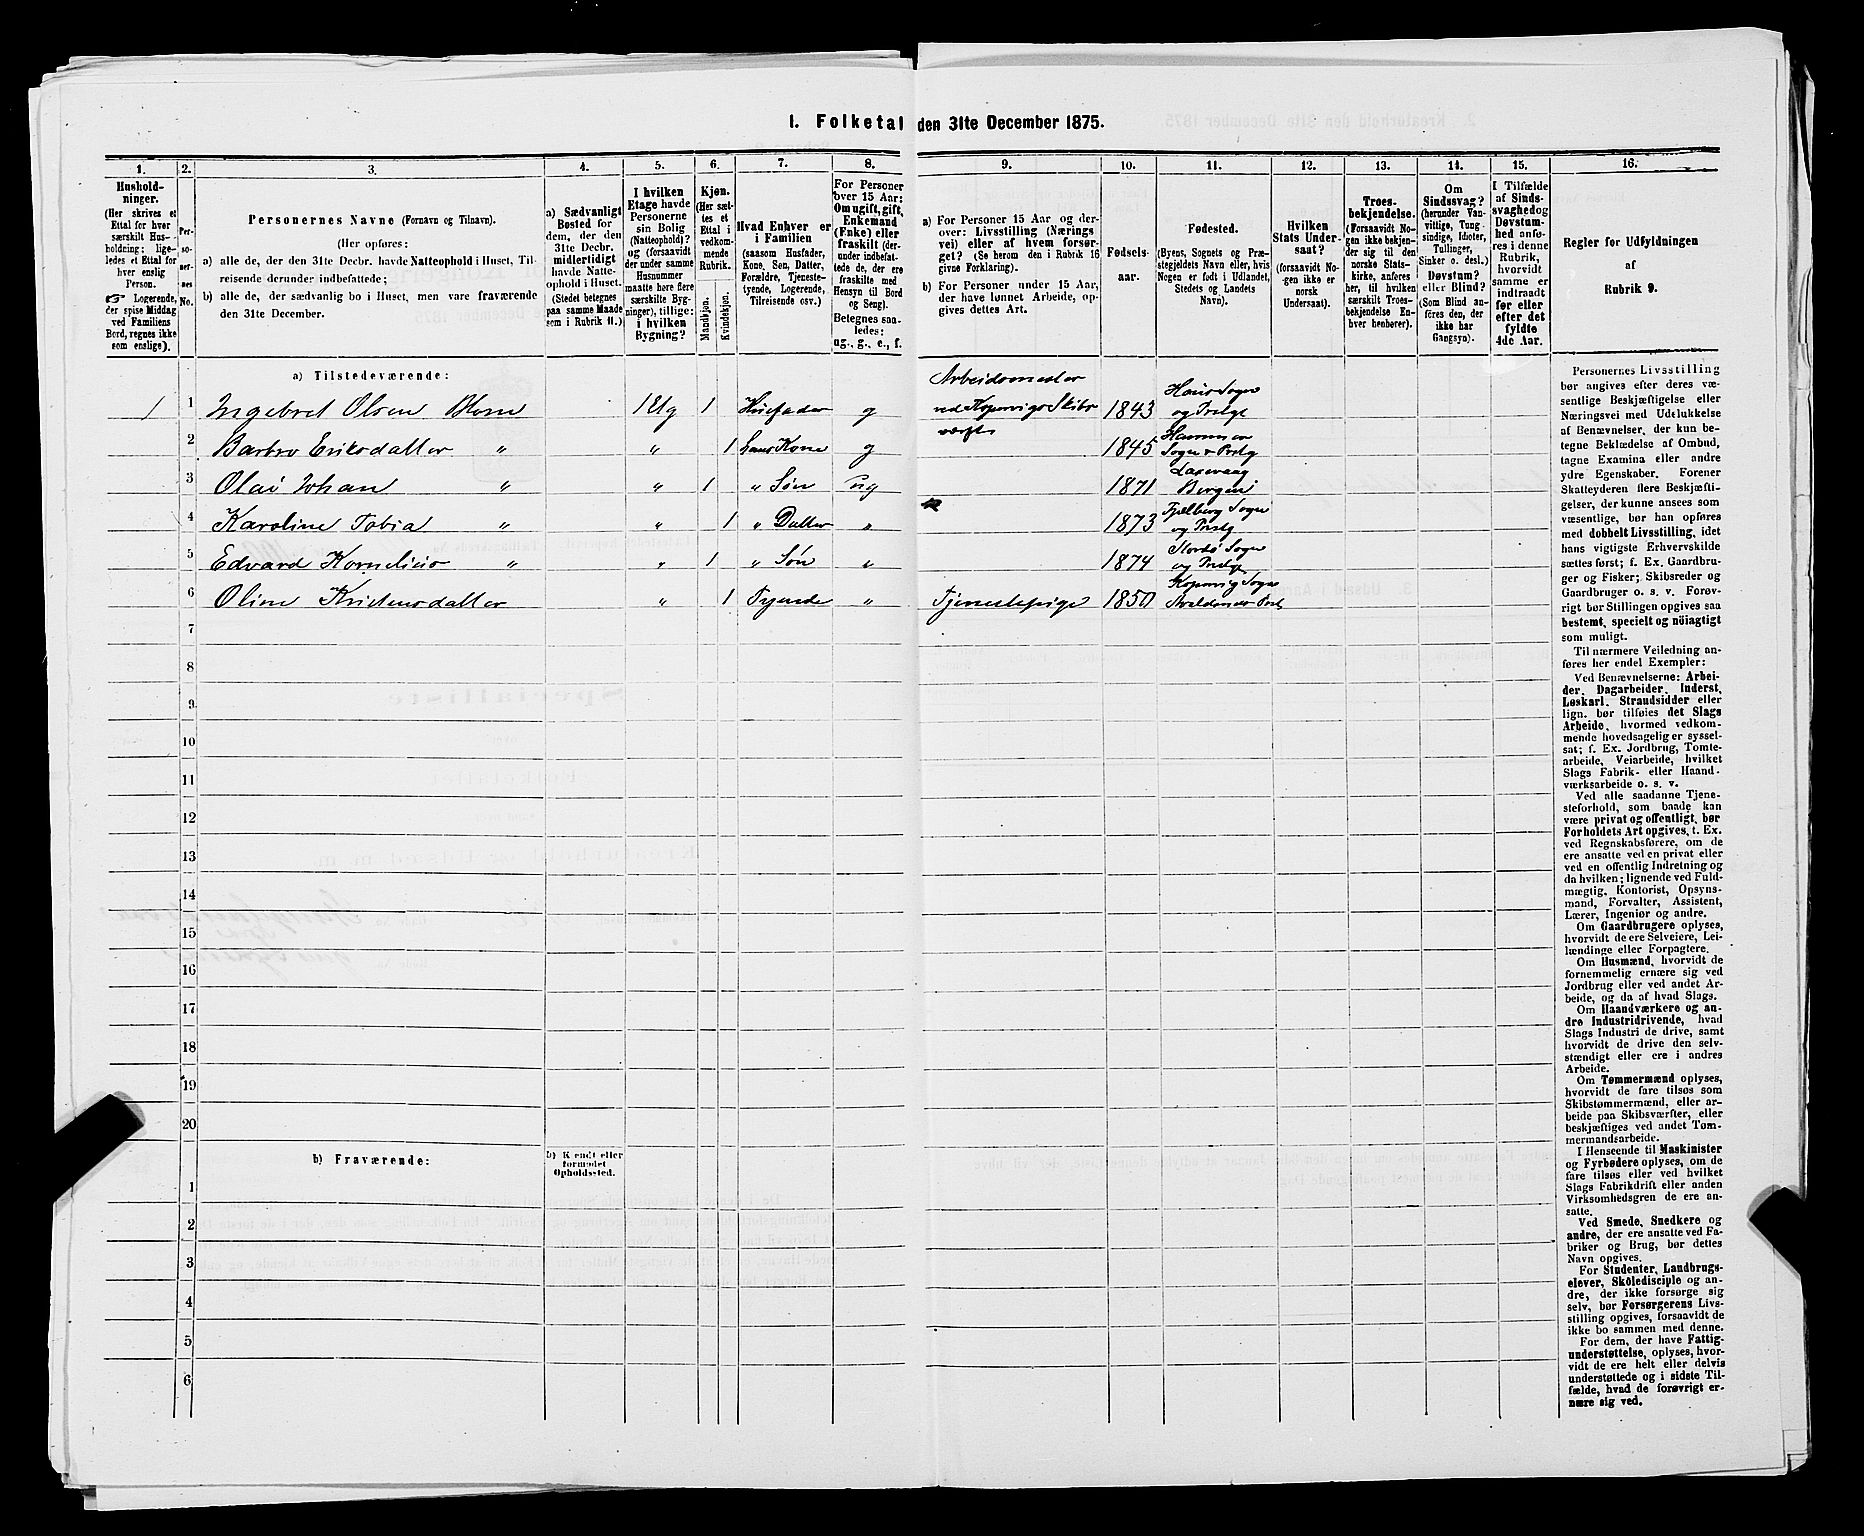 1. Folketal den 31te December 1875.
1.
Hushold-
ninger.
(Her skrives et
Ettal for hver
særskilt Hus-
holdning; lige-
ledes et Ettal for
hver enslig
Person.
☞ Logerende,
der spise Middag
ved Familiens
Bord, regnes ikke
som enslige).
2.
Per-
so-
ner-
nes
No.
3.
Personernes Navne (Fornavn og Tilnavn).
(Her opføres:
a) alle de, der den 31te Decbr. havde Natteophold i Huset, Til-
reisende derunder indbefattede;
b) alle de, der sædvanlig bo i Huset, men vare fraværende
den 31te December.
4.
a) Sædvanligt
Bosted for
dem, der den
31te Decbr.
midlertidigt
havde Natte-
ophold i Huset.
(Stedet betegnes
paa samme Maade
som i Rubrik 11.)
5.
I hvilken
Etage havde
Personerne
sin Bolig
(Natteophold)?
og (forsaavidt
der under samme
Husnummer
maatte høre flere
særskilte Byg-
ninger), tillige:
i hvilken
Bygning?
6.
Kjøn.
(Her sæt-
tes et
Ettal i
vedkom-
mende
Rubrik.
Mandkjøn.
Kvindekjøn.
7.
Hvad Enhver er
i Familien
(saasom Husfader,
Kone, Søn, Datter,
Forældre, Tjeneste-
tyende, Logerende,
Tilreisende osv.)
8.
For Personer
over 15 Aar:
Om ugift, gift,
Enkemand
(Enke) eller
fraskilt (der-
under indbefat-
tede de, der ere
fraskilte med
Hensyn til Bord
og Seng).
Betegnes saa-
ledes:
ug., g., e., f.
9.
a) For Personer 15 Aar og der-
over: Livsstilling (Nærings
vei) eller af hvem forsør-
get? (Se herom den i Rubrik 16
givne Forklaring).
b) For Personer under 15 Aar,
der have lønnet Arbeide, op-
gives dettes Art.
10.
Fødsels-
aar.
11.
Fødested.
(Byens, Sognets og Præ-
stegjeldets Navn eller, hvis
Nogen er født i Udlandet,
Stedets og Landets
Navn).
12.
Hvilken
Stats Under-
saat?
(forsaavidt No-
gen ikke er
norsk
Undersaat).
13.
Troes-
bekjendelse.
(Forsaavidt No-
gen ikke bekjen-
der sig til den
norske Stats-
kirke, anføres
her, til hvilken
særskilt Troes-
bekjendelse En-
hver henhører).
14.
Om
Sindssvag?
(herunder Van-
vittige, Tung-
sindige, Idioter,
Tullinger,
Sinker o. desl.)
Døvstum?
eller Blind?
(Som Blind an-
føres den, der
ikke har
Gangsyn).
15.
I Tilfælde
af Sinds-
svaghed og
Døvstum-
hed anfø-
res i denne
Rubrik,
hvorvidt
samme er
indtraadt
før eller
efter det
fyldte
4de Aar.
16.
Regler for Udfyldningen
af
Rubrik 9.
a) Tilstedeværende:
1 1 Ingebret Olsen 1 Etg 1 Husfader g Arbeidsmester
ved Kopervigs Skibs
værft 1843 Haus Sogn
og Prstg
2 Barbro Eriksdatter " " 1 hans Kone g 1845 Hammer
Sogn & Prstg
3 Olai Johan " " 1 " Søn ug 1871 Laxevaag
Bergen
4 Karoline Tobia " " 1 " Datter " 1873 Fjelberg Sogn
og Prstg
5 Edvard Kornelius " " 1 " Søn " 1874 Stordø Sogn
og Prstg
6 Oline Kristensdatter " 1 Tyende " Tjenestepige 1850 Kopervig Sogn
Avaldsnes Prst
7
8
9
10
11
12
13
14
15
16
17
18
19
20
b) Fraværende:
b) Kjendt eller
formodet
Opholdssted.
1
2
3
4
5
6
Personernes Livsstilling
bør angives efter deres væ-
sentlige Beskjæftigelse eller
Næringsvei med Udelukkelse
af Benævnelser, der kun be-
tegne Beklædelse af Ombud,
tagne Examina eller andre
ydre Egenskaber. Forener
Skatteyderen flere Beskjæfti-
gelser, der kunne ansees som
væsentlige, bør han opføres
med dobbelt Livsstilling, idet
hans vigtigste Erhvervskilde
sættes først; f. Ex. Gaardbru-
ger og Fisker; Skibsreder og
Gaardbruger o. s. v. Forøv-
rigt bør Stillingen opgives saa
bestemt, specielt og nöiagtigt
som muligt.
Til nærmere Veiledning an-
føres her endel Exempler:
Ved Benævnelserne: Arbei-
der, Dagarbeider, Inderst,
Løskarl, Strandsidder eller
lign. bør tilføies det Slags
Arbeide, hvormed vedkom-
mende hovedsagelig er syssel-
sat; f. Ex. Jordbrug, Tomte-
arbeide, Veiarbeide, hvilket
Slags Fabrik- eller Haand-
værksarbeide o. s. v.
Ved alle saadanne Tjene-
steforhold, som baade kan
være privat og offentligt, bør
Forholdets Art opgives, t. Ex.
ved Regnskabsførere, om de
ere ansatte ved en privat eller
ved en offentlig Indretning og
da hvilken; lignende ved Fuld-
mægtig, Kontorist, Opsyns-
mand, Forvalter, Assistent,
Lærer, Ingeniør og andre.
Om Gaardbrugere oplyses,
hvorvidt de ere Selveiere, Lei-
lændinge eller Forpagtere.
Om Husmænd, hvorvidt de
fornemmelig ernære sig ved
Jordbrug eller ved andet Ar-
beide, og da af hvad Slags.
Om Haandværkere og an-
dre Industridrivende, hvad
Slags Industri de drive, samt
hvorvidt de drive den selv-
stændigt eller ere i andres
Arbeide.
Om Tømmermænd oplyses,
hvorvidt de fare tilsøs som
Skibstømmermænd, eller ar-
beide paa Skibsværfter, eller
beskjæftiges ved andet Tøm-
mermandsarbeide.
I Henseende til Maskinister
og Fyrbødere oplyses, om de
fare tilsøs eller ved hvilket
Slags Fabrikdrift eller anden
Virksomhedsgren de ere an-
satte.
Ved Smede, Snedkere og
andre, der ere ansatte ved Fa-
briker og Brug, bør dettes
Navn opgives.
For Studenter, Landbrugs-
elever, Skoledisciple og an-
dre, der ikke forsørge sig
selv, bør Forsørgerens Livs-
stilling opgives, forsaavidt de
ikke bo sammen med denne.
For dem, der have Fattig-
understøttelse, oplyses, hvor-
vidt de ere helt eller delvis
understøttede og i sidste Til-
fælde, hvad de forøvrigt er-
nære sig ved.